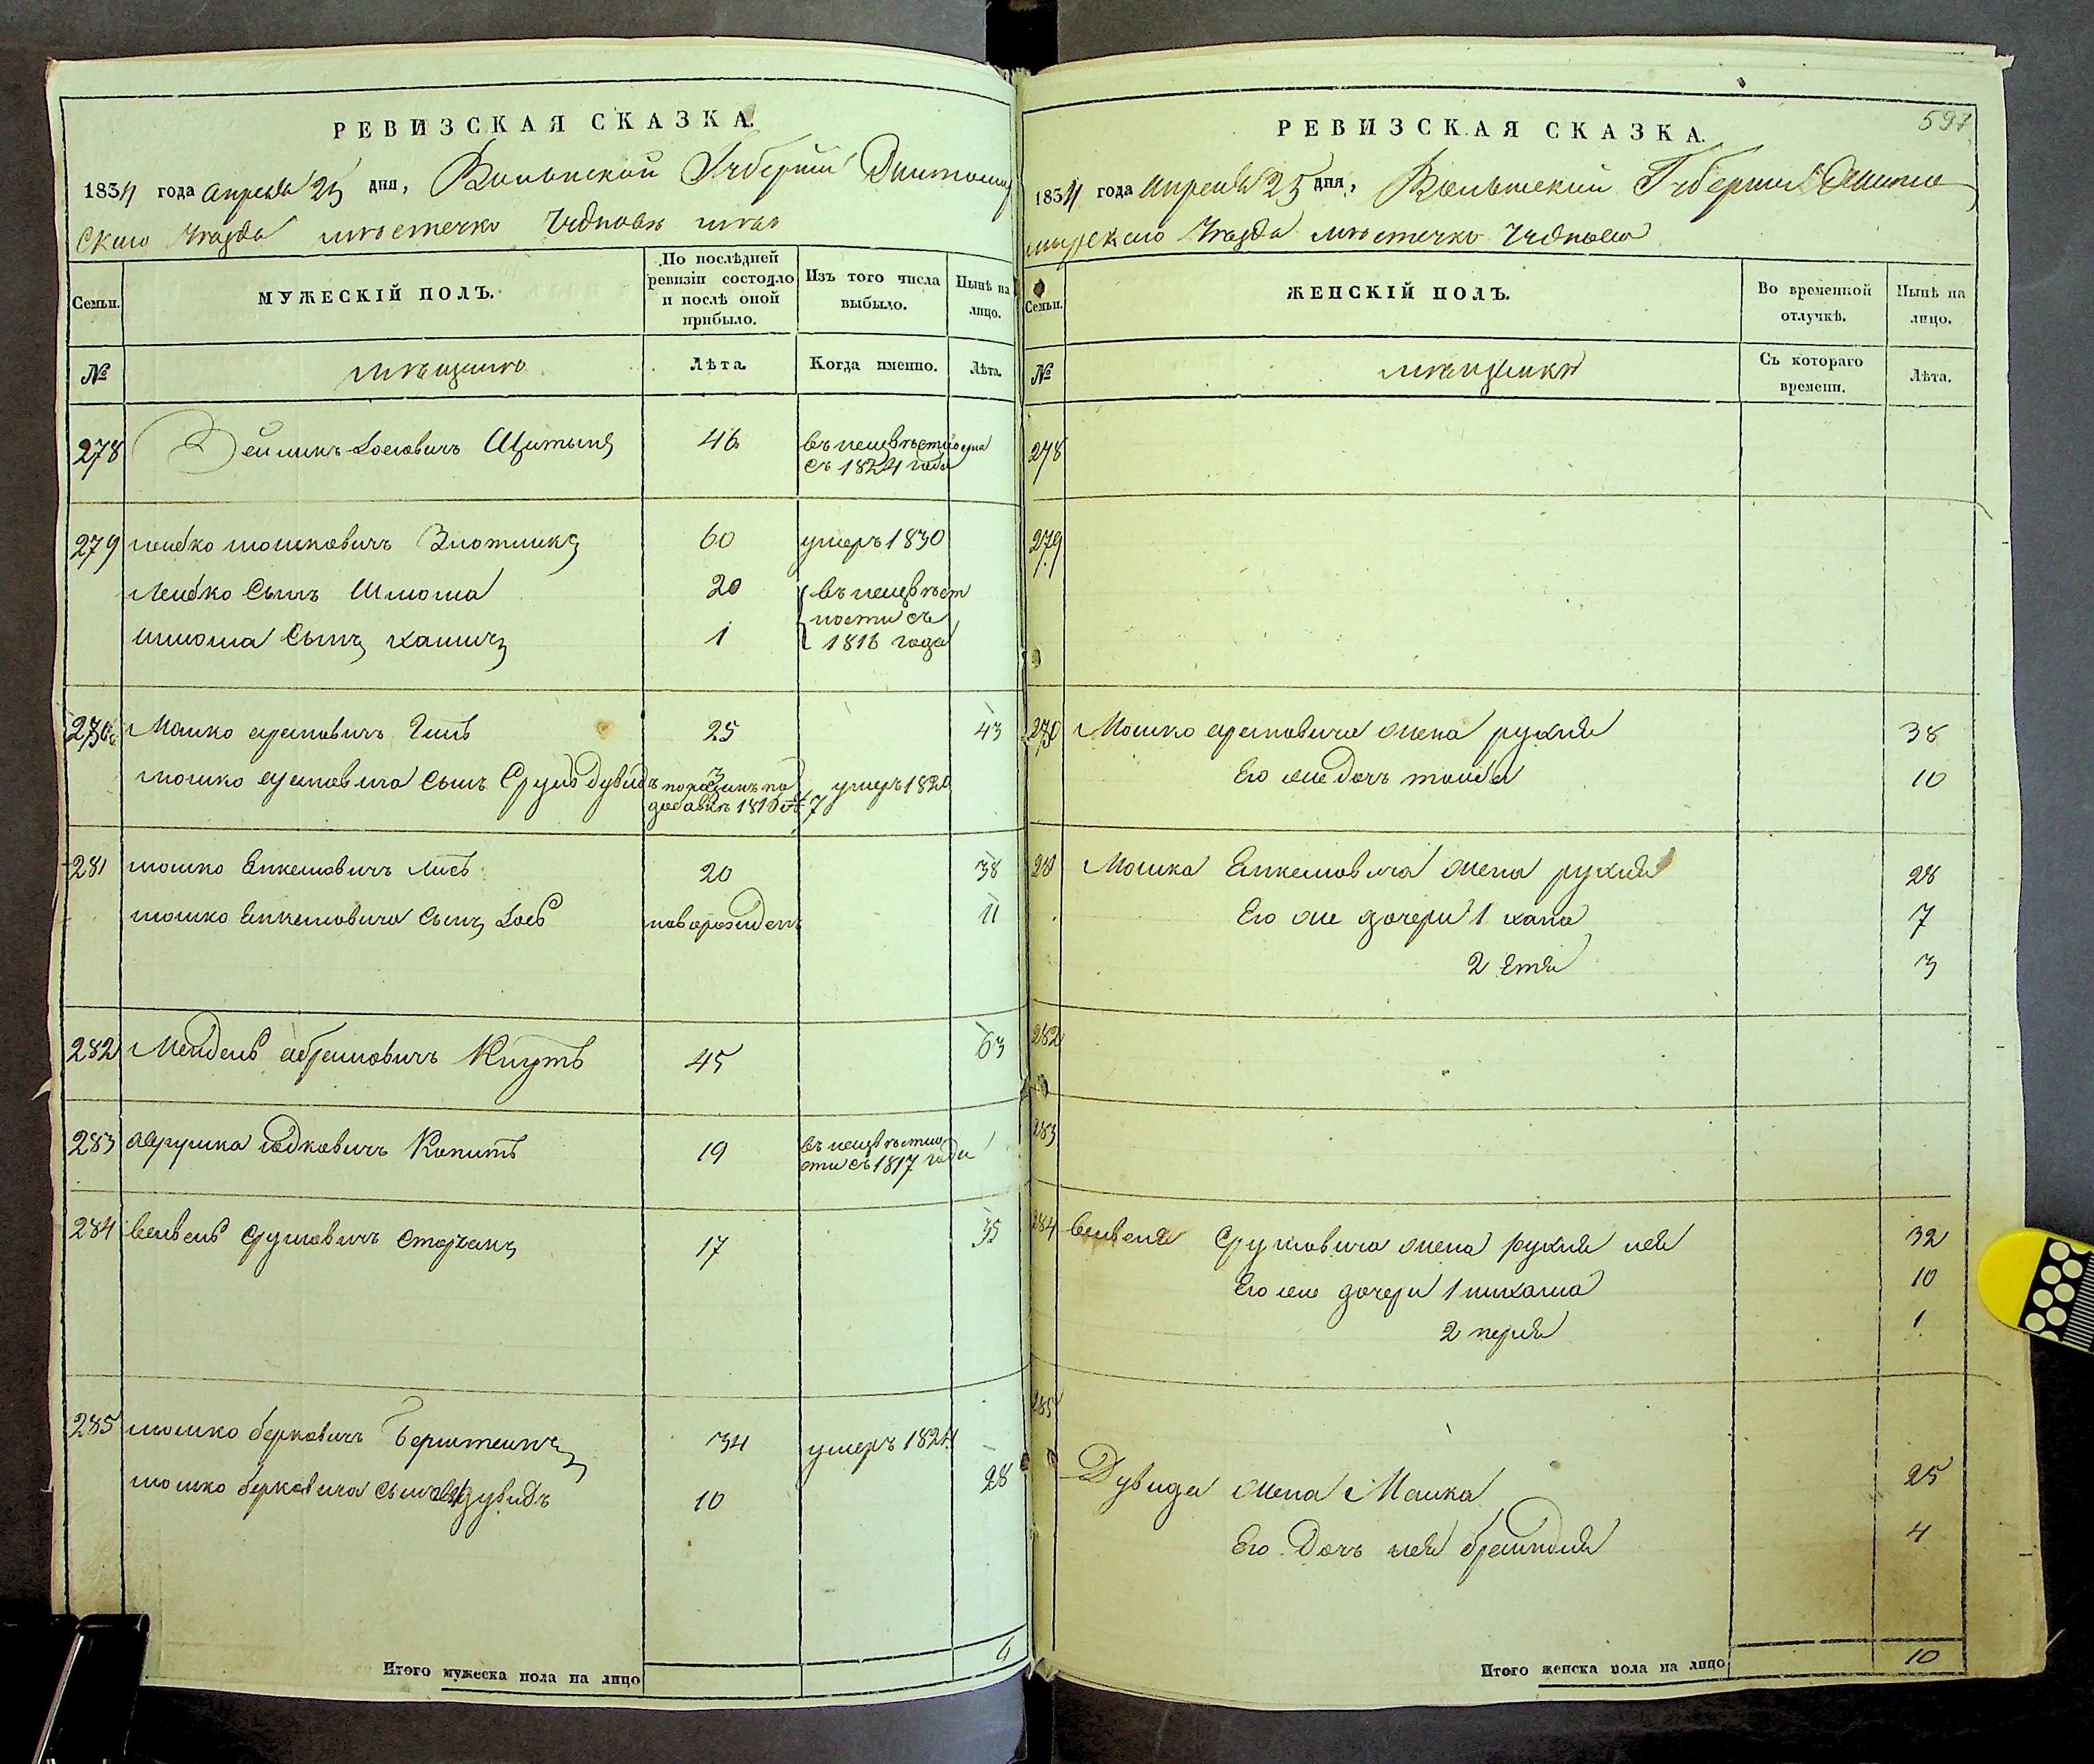 РЕВИЗСКАЯ СКАЗКА.
1834 года Апреля 25 дня, Волынской Губернии Житомир
ского Уезда местечко Чуднова
Семьи.
МУЖЕСКІЙ ПОЛЪ.
По послѣдней ревизіи состояло и послѣ оной прибыло.
Изъ того числа выбыло.
Нынѣ на лицо.
№
мещане
Лѣта.
Когда именно.
Лѣта.
278 Зейликъ Лосіовичъ 46 въ неизвѣстности
съ 1824 года
279 лейбко мошковичъ Злотникъ 60 умеръ 1830
Лейбко сынъ Шлёма 20 въ неизвѣст
ности съ
шлёма сынъ хаимъ 1 1816 года
280 Мошко срулиовичъ 25 43
мошко сруловича сынъ Сруль дувидъ умеръ 1820
281 мошко Янкелиовичъ Лисъ 20 38
мошко Янкелиовича сынъ Іось новорожденъ 11
282 Мендель абрамовичъ Кнутъ 45 63
283 Аврумка іодковичъ Копитъ 19 въ неизвѣстно
сти съ 1817 года
284 вельвель Срулиовичъ Столяръ 17 35
285 мошко берковичъ Бернштейнъ 34 умеръ 1824
мошко берковича сынъ дувидъ 10 28
Итого мужеска пола на лицо 6
597
РЕВИЗСКАЯ СКАЗКА.
1834 года Апреля 25 дня, Волынской Губернии Жито
мирского Уезда местечко Чуднова
Семьи.
ЖЕНСКІЙ ПОЛЪ.
Во временной отлучкѣ.
Нынѣ на лицо.
№
мещанки
Съ котораго времени.
Лѣта.
278
279
280 Мошко сруловича жена рухля 38
Его же дочь тойба 10
281 Мошка Янкелиовича жена рухля 28
Его же дочери 1 хана 7
2 Этя 3
282
283
284 Вельвеля Срулиовича жена рухля лея 32
Его же дочери 1 10
2 перля 1
285
Дувида жена Малка 25
Его дочь лея брейндля 4
Итого женска пола на лицо 10